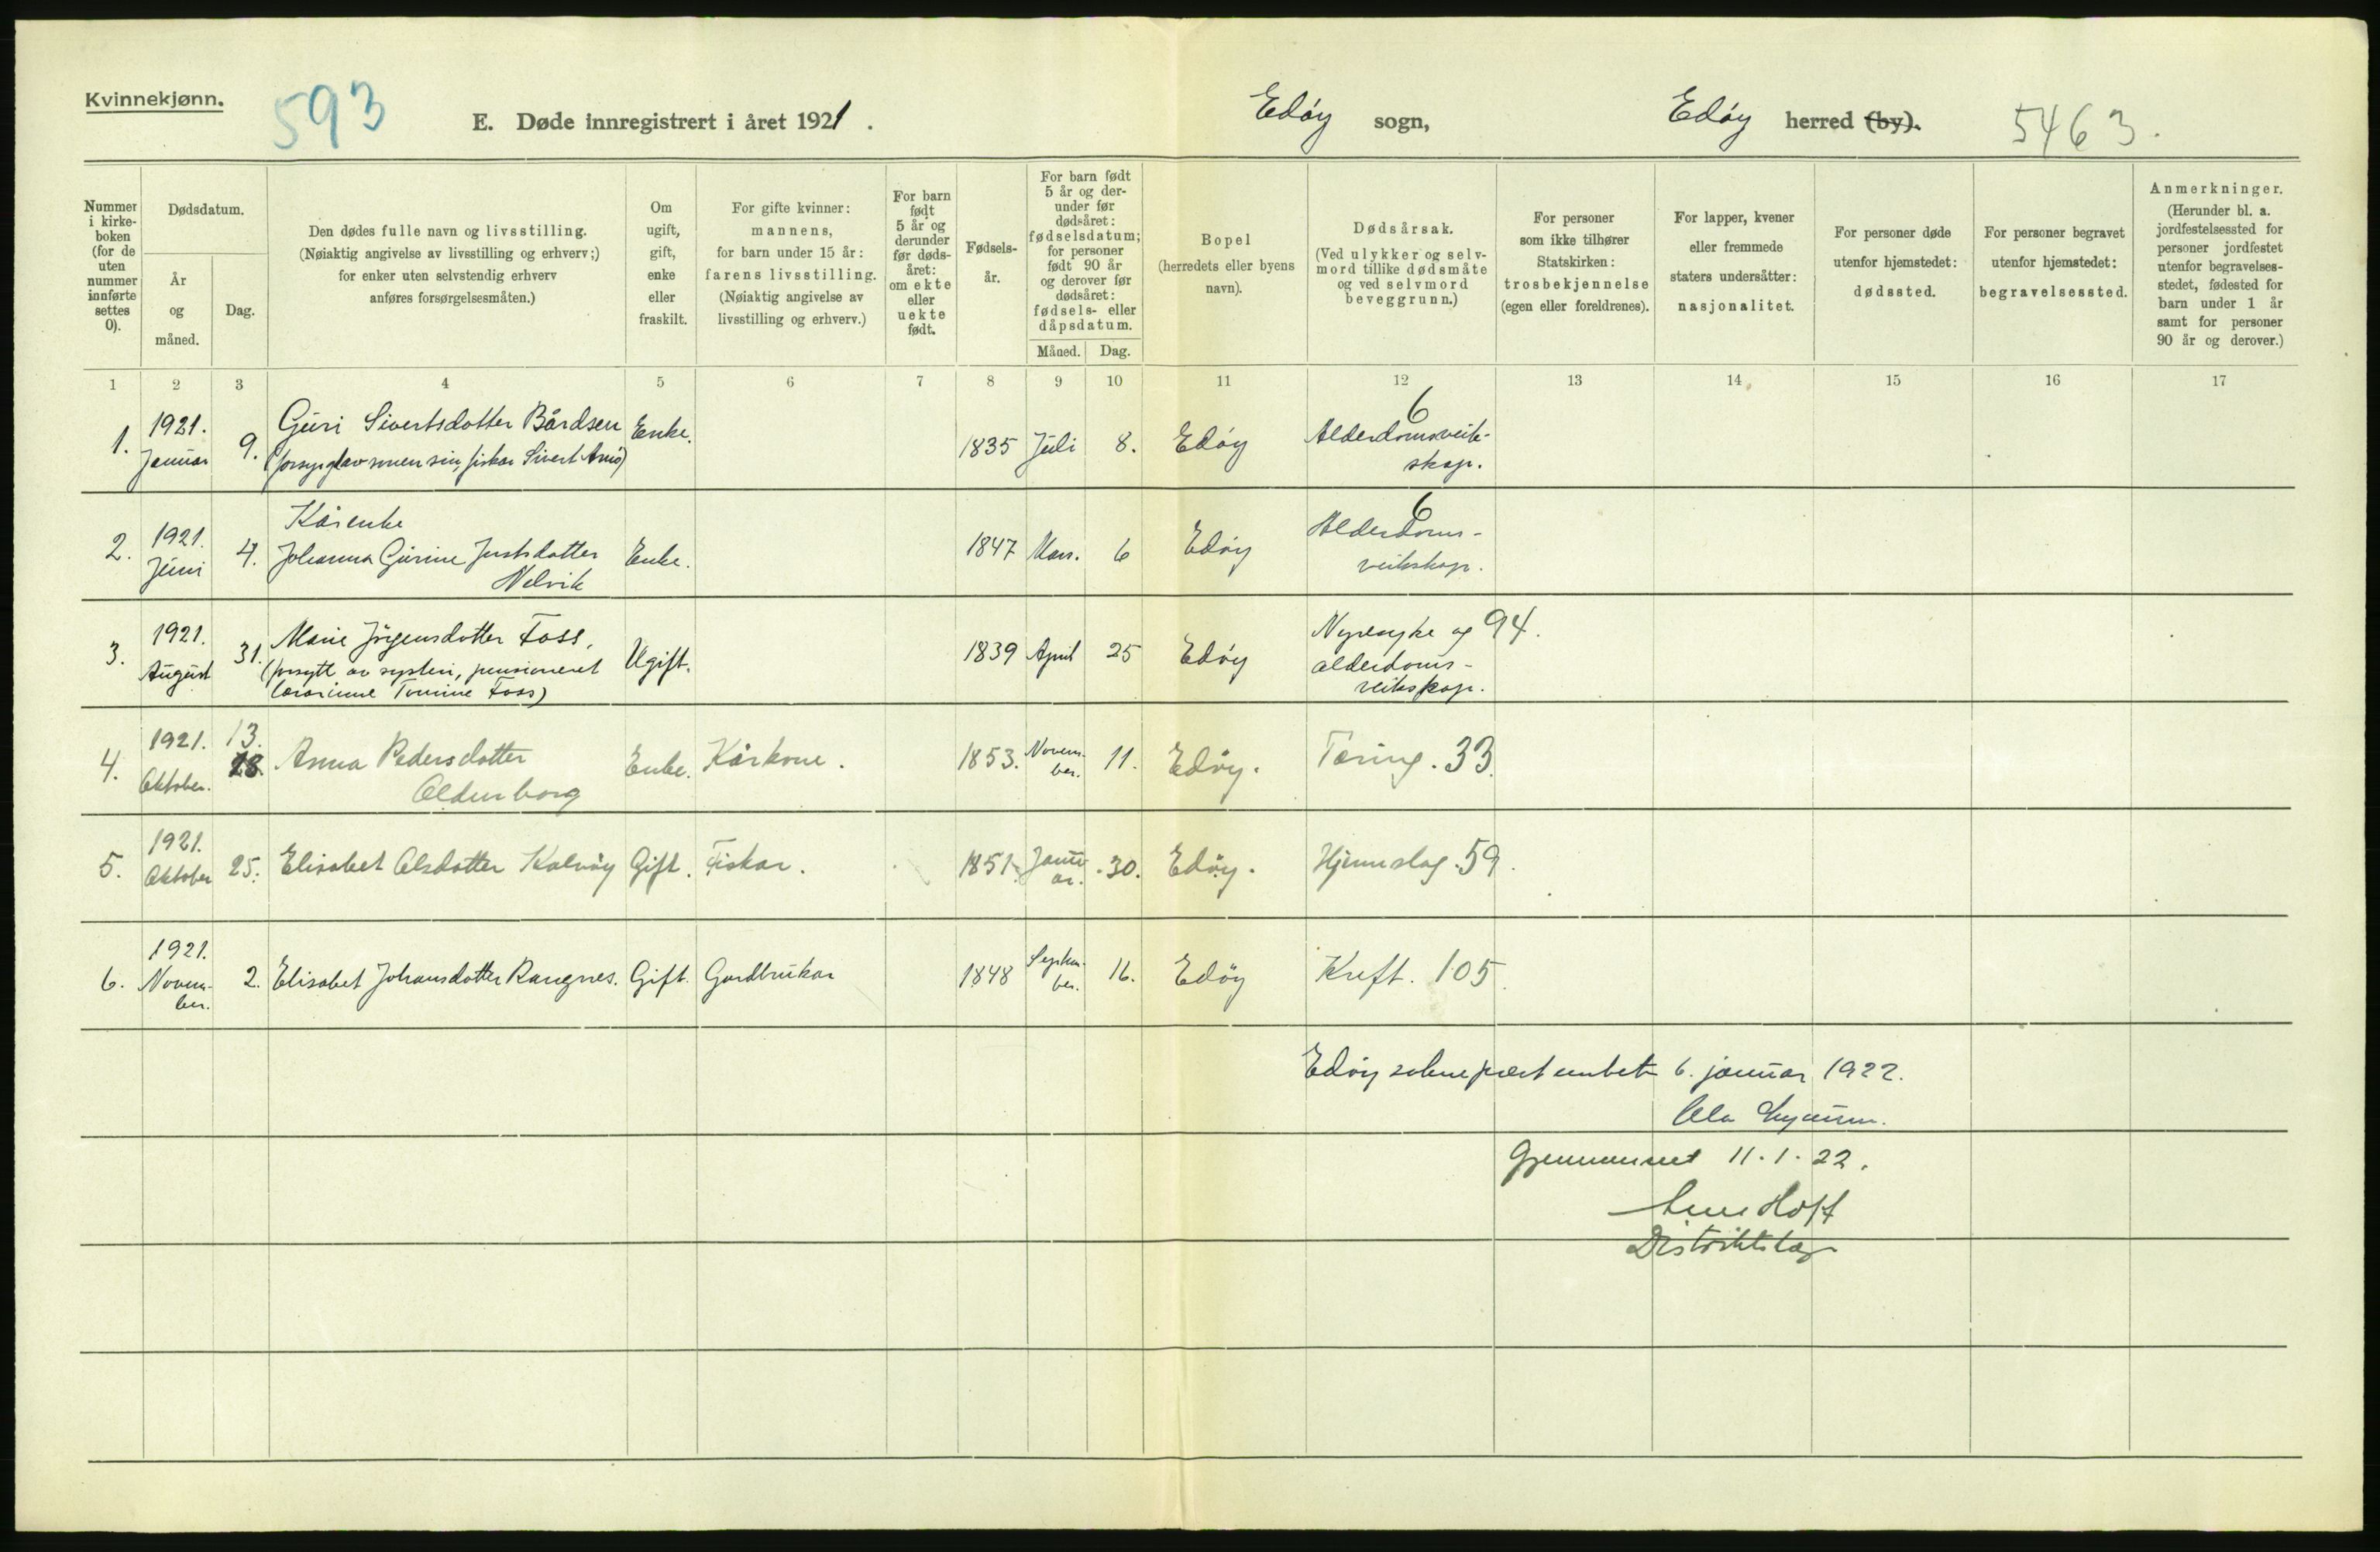 Kvinnekjønn.
593
E. Døde innregistrert i året 1921.
Edöy sogn,
Edöy herred (by).
5463.
Nummer i kirke-boken (for de uten nummer innførte settes 0).
Dødsdatum.
År og måned.
Dag.
Den dødes fulle navn og livsstilling.
(Nøiaktig angivelse av livsstilling og erhverv;)
for enker uten selvstendig erhverv
anføres forsørgelsesmåten.)
Om ugift, gift, enke eller fraskilt.
For gifte kvinner:
mannens,
for barn under 15 år:
farens livsstilling.
(Nøiaktig angivelse av
livsstilling og erhverv.)
For barn født 5 år og derunder før døds-året: om ekte eller uekte født.
Fødsels-år.
For barn født 5 år og der-under før dødsåret: fødselsdatum; for personer født 90 år og derover før dødsåret: fødsels- eller dåpsdatum.
Måned.
Dag.
Bopel
(herredets eller byens navn).
Dødsårsak.
(Ved ulykker og selv-mord tillike dødsmåte og ved selvmord beveggrunn.)
For personer som ikke tilhører Statskirken: trosbekjennelse (egen eller foreldrenes).
For lapper, kvener eller fremmede staters undersåtter: nasjonalitet.
For personer døde utenfor hjemstedet: dødssted.
For personer begravet utenfor hjemstedet: begravelsessted.
Anmerkninger.
(Herunder bl. a. jordfestelsessted for personer jordfestet utenfor begravelses-stedet, fødested for barn under 1 år samt for personer 90 år og derover.)
1 2 3 4 5 6 7 8 9 10 11 12 13 14 15 16 17
1. 1921. Januar 9. Guri Sivertsdotter Bårdsen Enke. 1835 Juli 8. Edöy 6 Alderdomsveik-
(forsyrgd av sonen sin, fiskar Sivert) skap.
2. 1921. Juni 4. Kårenke 6
Johanna Gurine Justsdotter Enke. 1847 Mars. 6 Edöy Alderdoms-
Nelvik veikskap.
3. 1921. August 31. Marie Jörgensdotter Foss, Ugift. 1839 April 25 Edöy Nyresyke og 94.
(forsytt av systeri, pensioneret alderdoms-
lærarinne Tomine Foss) veikskap.
4. 1921. Oktober. 13. 28. Anna Pedersdotter Enke. Kårkone. 1853. November. 11. Edöy. Tæring. 33.
Oldenborg
5. 1921. Oktober 25. Elisabet Olsdotter Kalvöy Gift. Fiskar. 1851. Januar. 30. Edöy. Hjerneslag. 59.
6. 1921. November. 2. Elisabet Johansdotter Rangnes. Gift. Gardbrukar 1848 September. 16. Edöy Kreft. 105.
Edöy sokneprestembete 6. januar 1922.
Ola
Gjennemset 11.1.22.
Hoff
Distriktslæge